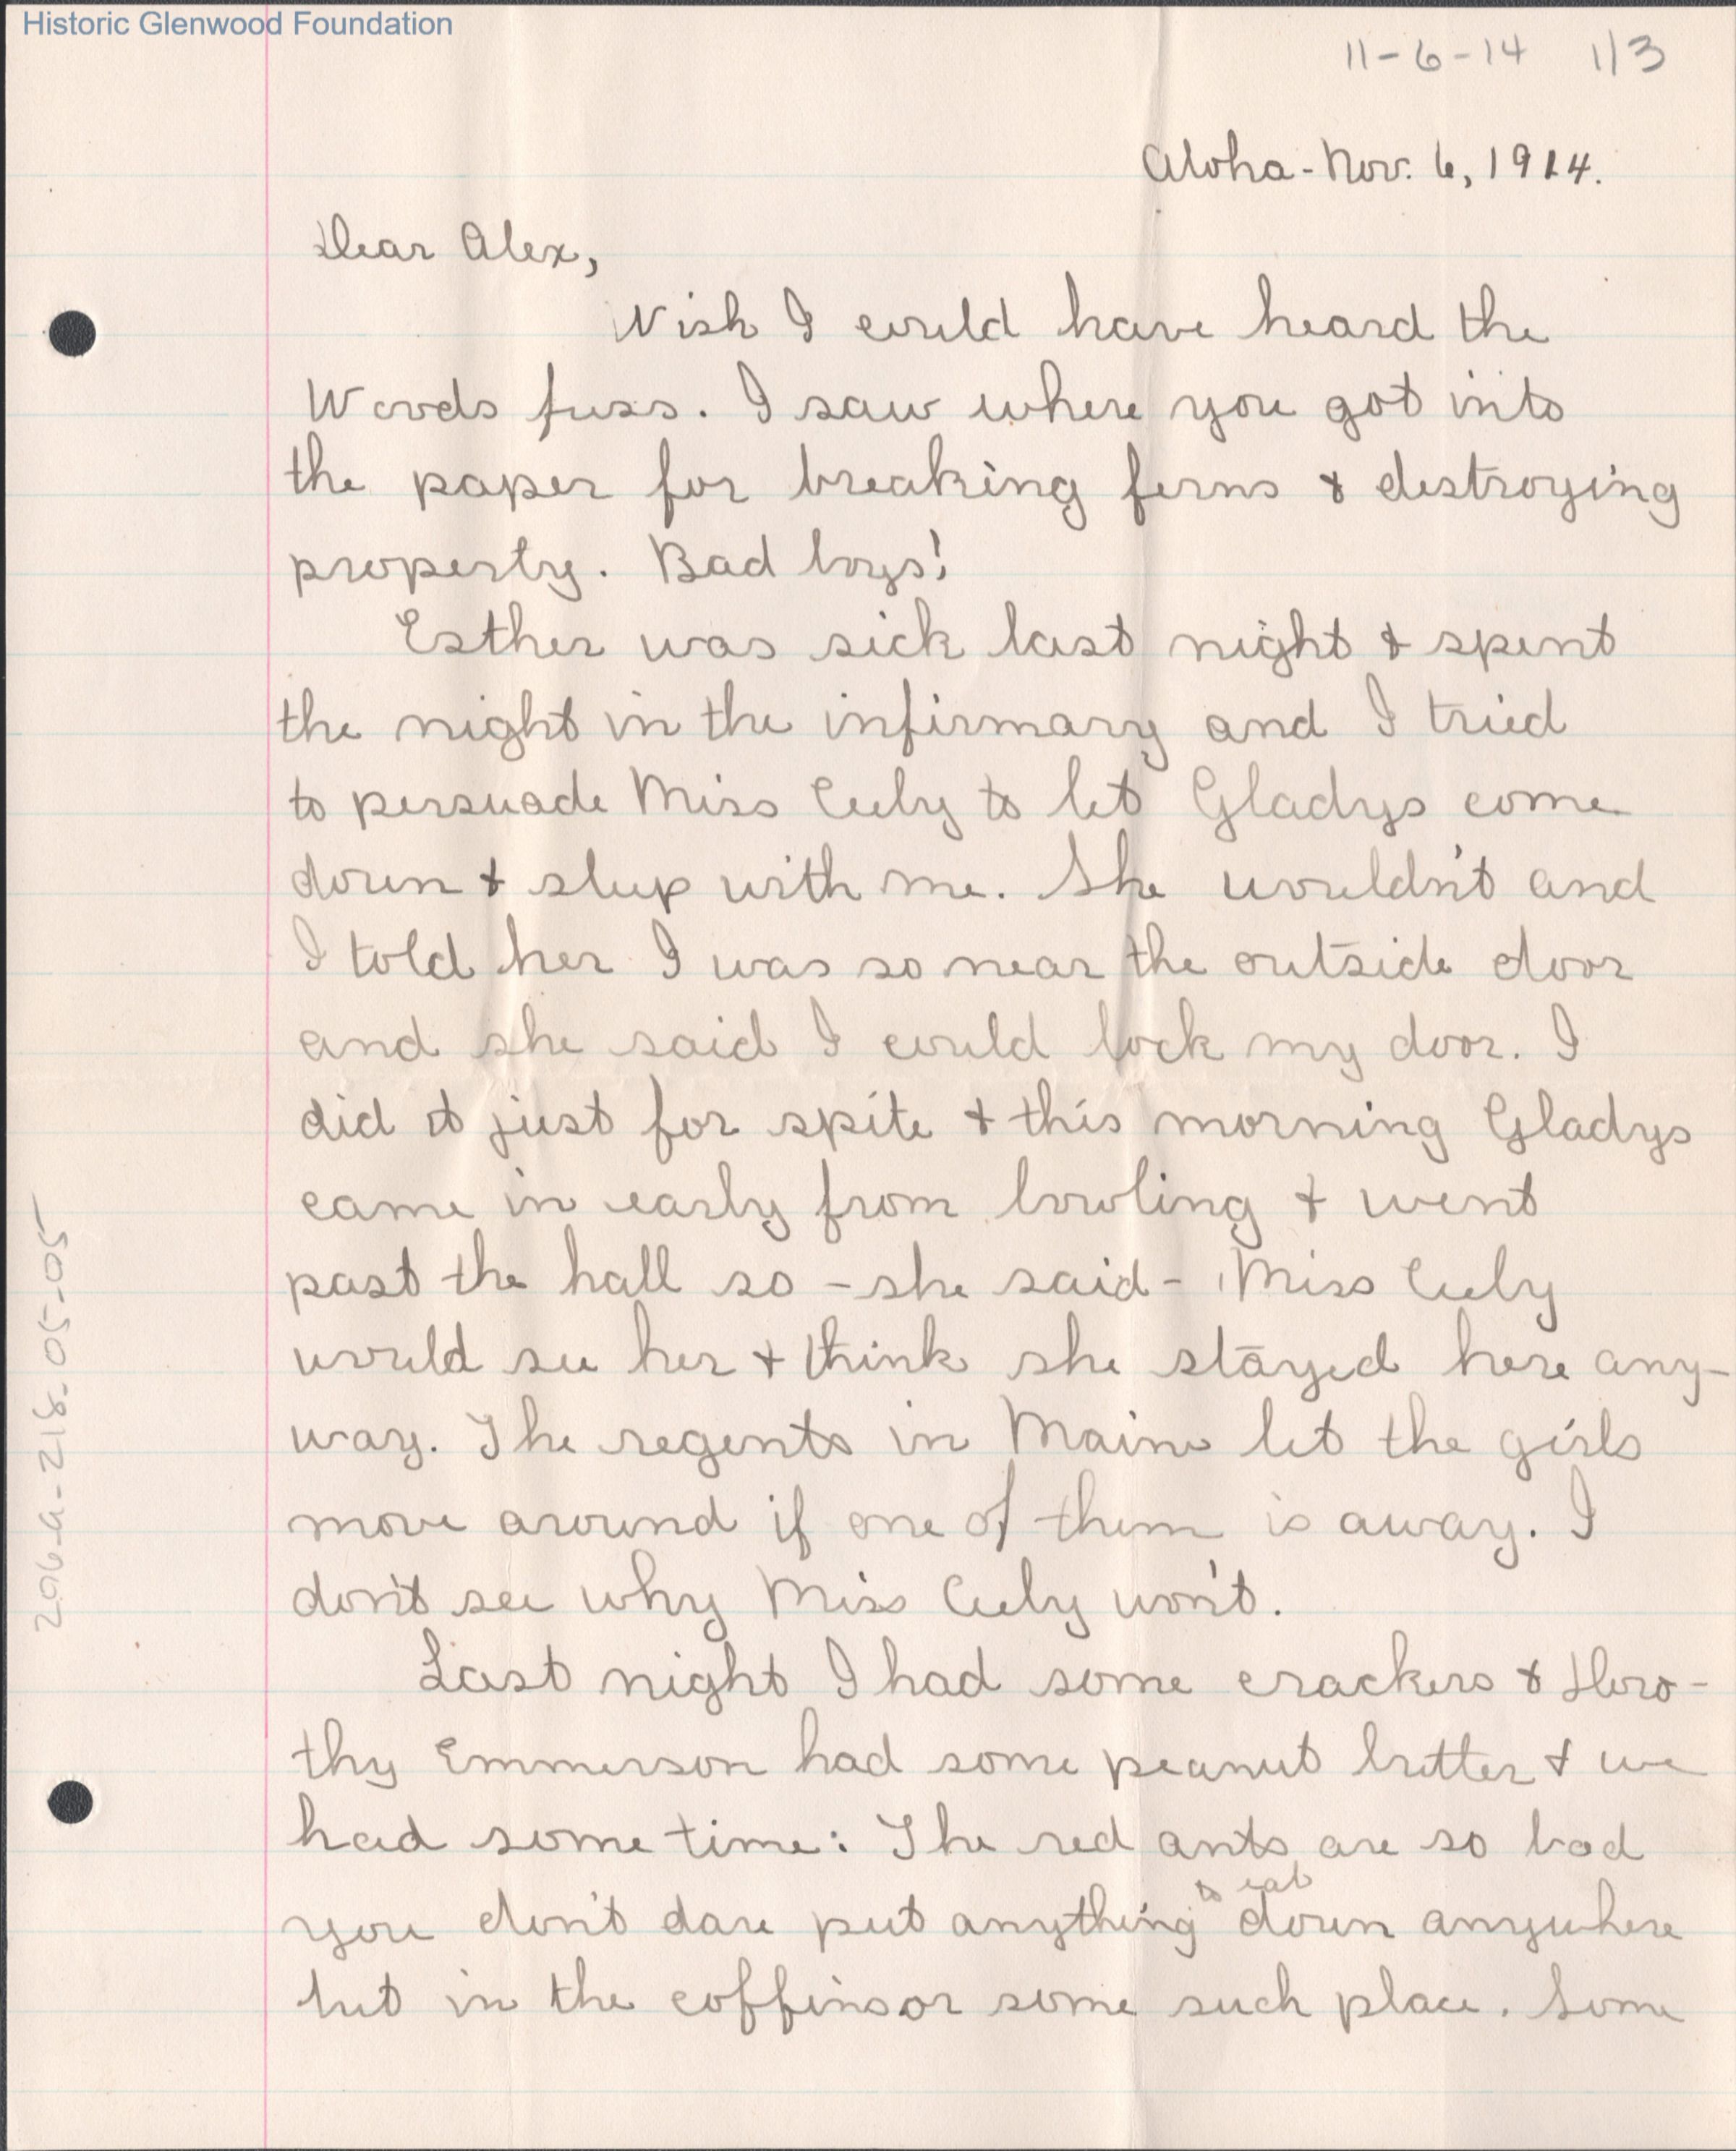 Historic Glenwood Foundation
11-6-14 1/3
Aloha - Nov. 6, 1914.
Dear Alex,
Wish I could have heard the
Woods fuss. I saw where you got into
the paper for breaking ferns & destroying
property. Bad boys!
Esther was sick last night & spent
the night in the infirmary and I tried
to persuade Miss Ceely to let Gladys come
down & sleep with me. She wouldn't and
I told her I was so near the outside door
and she said I could lock my door. I
did it just for spite & this morning Gladys
came in early from bowling & went
past the hall so - she said - Miss Ceely
would see her & think she stayed here any-
way. The regents in Main let the girls
move around if one of them is away. I
don't see why Miss Ceely won't.
Last night I had some crackers & Doro-
thy Emmerson had some peanut butter & we
had some time: The red ants are so bad
to eat
you don't dare put anything down anywhere
but in the coffins or some such place. Some
206-a-218-05-05